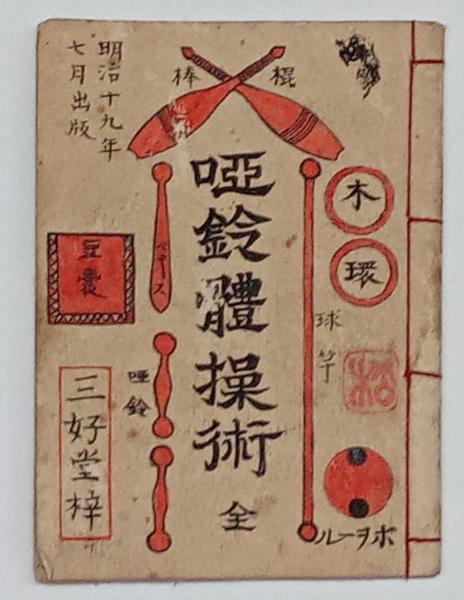 明治十九年
七月出版
棍
棒
木
環
啞鈴體操術 全
球竿
豆嚢
啞鈴
三好堂梓
ボヲール